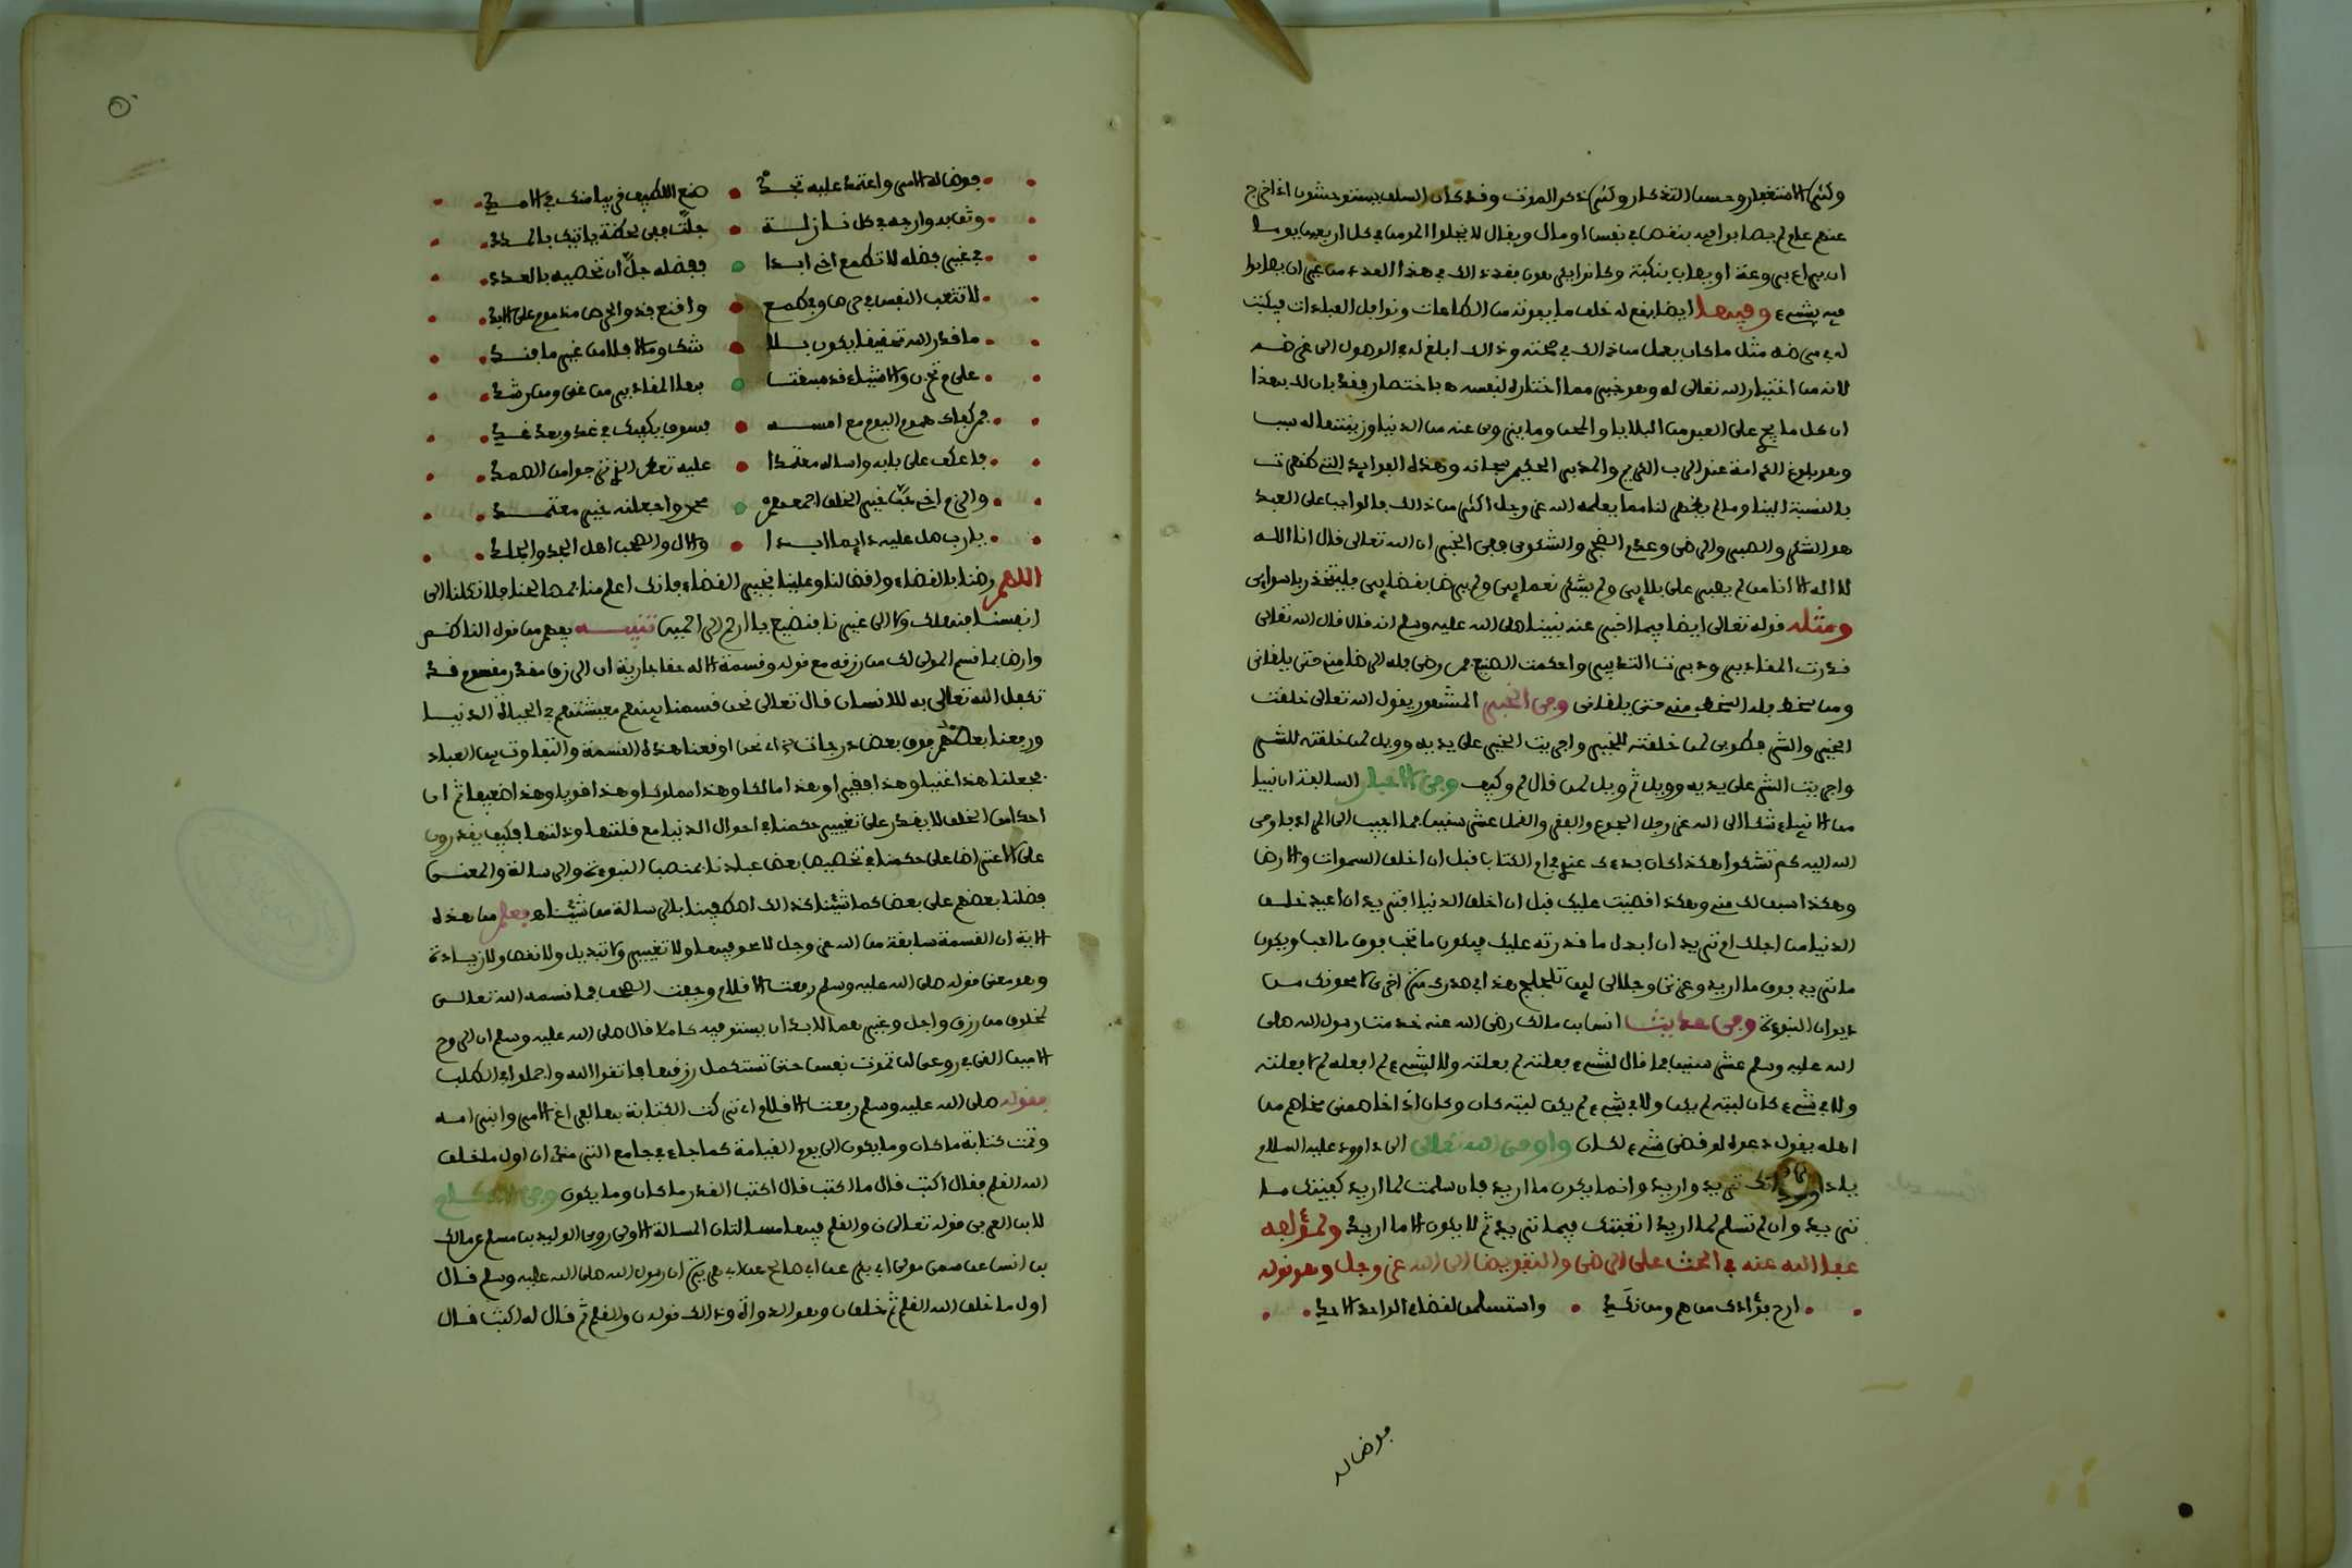 وكثرة الاستغفار وحسن التذكار وكثرة ذكر الموت وقد كان السلف يستوحشون اذا خرج
عنهم عام لم يصابوا فيه بنقص في نفس او مال ويقال لا يخلوا المومن في كل اربعين يوما
ان يراع بروعة او يصاب بنكبة وكانوا يكرهون فقد ذالك في هذا العدد من غير ان يصابوا
فيه بشيء وفيها ايضا يقع له خلف ما يفوته من الطاعات ونوافل العبادات فيكتب
له في مرضه مثل ما كان يعمل من ذالك في صحته وذالك ابلغ له في الوصول الى غرضه
لانه من اختيار الله تعالى له وهو خير مما اختاره لنفسه باختصار فقد بان لك بهذا
ان كل ما يرد على العبد من البلايا والمحن وما ينزوى عنه من الدنيا وزينتها له سبب
وهو بلوغ الكرامة عند الرب الكريم والمدبر الحكيم سبحانه وهذه الفوايد التي ظهرت
بالنسبة الينا وما لم يظهر لنا مما يعلمه الله عز وجل اكثر من ذالك فالواجب على العبد
هو الشكر والصبر والرضى وعدم الضجر والشكوى وفي الخبر ان الله تعالى قال انا الله
لا اله الا انا من لم يصبر على بلاءي ولم يشكر نعماءي ولم يرض بقضاءي فليتخذ ربا سواءي
ومثله قوله تعالى ايضا فيما اخبر عنه نبينا صلى الله عليه وسلم انه قال قال الله تعالى
قدرت المقادير ودبرت التدبير واحكمت الصنع فمن رضي فله الرضا مني حتى يلقاني
ومن سخط فله السخط مني حتى يلقاني وفي الخبر المشهور يقول الله تعالى خلقت
الخير والشر فطوبى لمن خلقته للخير واجريت الخير على يديه وويل لمن خلقته للشر
واجريت الشر على يديه وويل ثم ويل لمن قال لم وكيف وفي الاخبار السالفة ان نبيا
من الانبياء شكا الى الله عز وجل الجوع والفقر والقمل عشر سنين فما اجيب الى ما اراد فاوحى
الله اليه كم تشكوا هكذا كان بدءك عندي في ام الكتاب قبل ان اخلق السموات والارض
وهكذا سبق لك مني وهكذا قضيت عليك قبل ان اخلق الدنيا افتريد ان اعيد خلق
الدنيا من اجلك ام تريد ان ابدل ما قدرته عليك فيكون ما تحب فوق ما احب ويكون
ما تريد فوق ما اريد وعزتي وجلالي لين تلجلج هذا في صدرك مرة اخرى لامحونك من
ديوان النبوءة وفي حديث انس بن مالك رضي الله عنه خدمت رسول الله صلى
الله عليه وسلم عشر سنين فما قال لشيء فعلته لم فعلته ولا لشيء لم افعله لم لا فعلته
ولا في شيء كان ليته لم يكن ولا في شيء لم يكن ليته كان وكان اذا خاصمني مخاصم من
اهله يقول دعوه لو قضي شيء لكان واوحى الله تعالى الى داوود عليه السلام
يا داوود انك تريد واريد وانما يكون ما اريد فان سلمت لما اريد كفيتك ما
تريد وان لم تسلم لما اريد اتعبتك فيما تريد ثم لا يكون الا ما اريد ولمؤلفه
عفا الله عنه في الحث على الرضى والتفويض الى الله عز وجل وهو قوله
ارح فؤادك من هم ومن نكد واستسلمن لقضاء الواحد الاحد
فوض له
فوض له الامر واعتمد عليه تجد صنع اللطيف في بياضك في الامد
وثق به وارجه في كل نازلة جلت ففي لحظة ياتيك بالمدد
في غير فضله لا تطمع اخي ابدا ففضله جل ان تحصيه بالعدد
لا تتعب النفس في حرص وفي طمع واقنع فذو الحرص مذموم على الابد
ما قدر الله تحقيقا يكون بلا شك وما لا فلا من غير ما فند
على م تحزن والاشياء قد سبقت بها المقادير من غي ومن رشد
فمن كفاك هموم اليوم مع امسه فسوف يكفيك في غد وبعد غد
فاعكف على بابه واساله معتمدا عليه تعط الذي ترجوا من الصمد
والزم اخي حب خير الخلق اجمعهم محمد واجعلنه خير معتمد
يا رب صل عليه دايما ابدا والال والصحب اهل المجد والجلد
اللهم رضنا بالقضاء واقض لنا وعلينا بخير القضاء فانك اعلم منا بمصالحنا فلا تكلنا الى
انفسنا فنهلك ولا الى غيرنا فنضيع يا ارحم الراحمين تنبيه يفهم من قول الناظم
وارض بما قسم المولى لك من رزقه مع قوله وقسمة الاله حقا جارية ان الرزق مقدر مقسوم قد
تكفل الله تعالى به للانسان قال تعالى نحن قسمنا بينهم معيشتهم في الحياة الدنيا
ورفعنا بعضهم فوق بعض درجات اي نحن اوقعنا هذه القسمة والتفاوت بين العباد
فجعلنا هذا غنيا وهذا فقيرا وهذا مالكا وهذا مملوكا وهذا قويا وهذا ضعيفا ثم ان
احدا من الخلق لا يقدر على تغيير حكمنا في احوال الدنيا مع قلتها وذلتها فكيف يقدرون
على الاعتراض على حكمنا في تخصيص بعض عبادنا بمنصب النبوءة والرسالة والمعنى
فضلنا بعضهم على بعض كما شئنا كذالك اصطفينا بالرسالة من شئنا فعلم من هذه
الاية ان القسمة سابقة من الله عز وجل لا محو فيها ولا تغيير ولا تبديل ولا نقص ولا زيادة
وهو معنى قوله صلى الله عليه وسلم رفعت الاقلام وجفت الصحف فما قسمه الله تعالى
لمخلوق من رزق واجل وغيرهما لا بد ان يستوفيه كاملا قال صلى الله عليه وسلم ان الروح
الامين القى في روعي لن تموت نفس حتى تستكمل رزقها فاتقوا الله واجملوا في الطلب
فقوله صلى الله عليه وسلم رفعت الاقلام اي تركت الكتابة بها لفراغ الامر وانبرامه
وتمت كتابة ما كان وما يكون الى يوم القيامة كما جاء في جامع الترمذي ان اول ما خلق
الله القلم فقال اكتب قال ما اكتب قال اكتب القدر ما كان وما يكون وفي الاحكام
لابن العربي قوله تعالى ن والقلم فيها مسالتان المسالة الاولى روى الوليد بن مسلم عن مالك
بن انس عن سمي مولى ابي بكر عن ابي صالح عن ابي هريرة ان رسول الله صلى الله عليه وسلم قال
اول ما خلق الله القلم ثم خلق ن وهو الدواة وذالك قوله ن والقلم ثم قال له اكتب قال